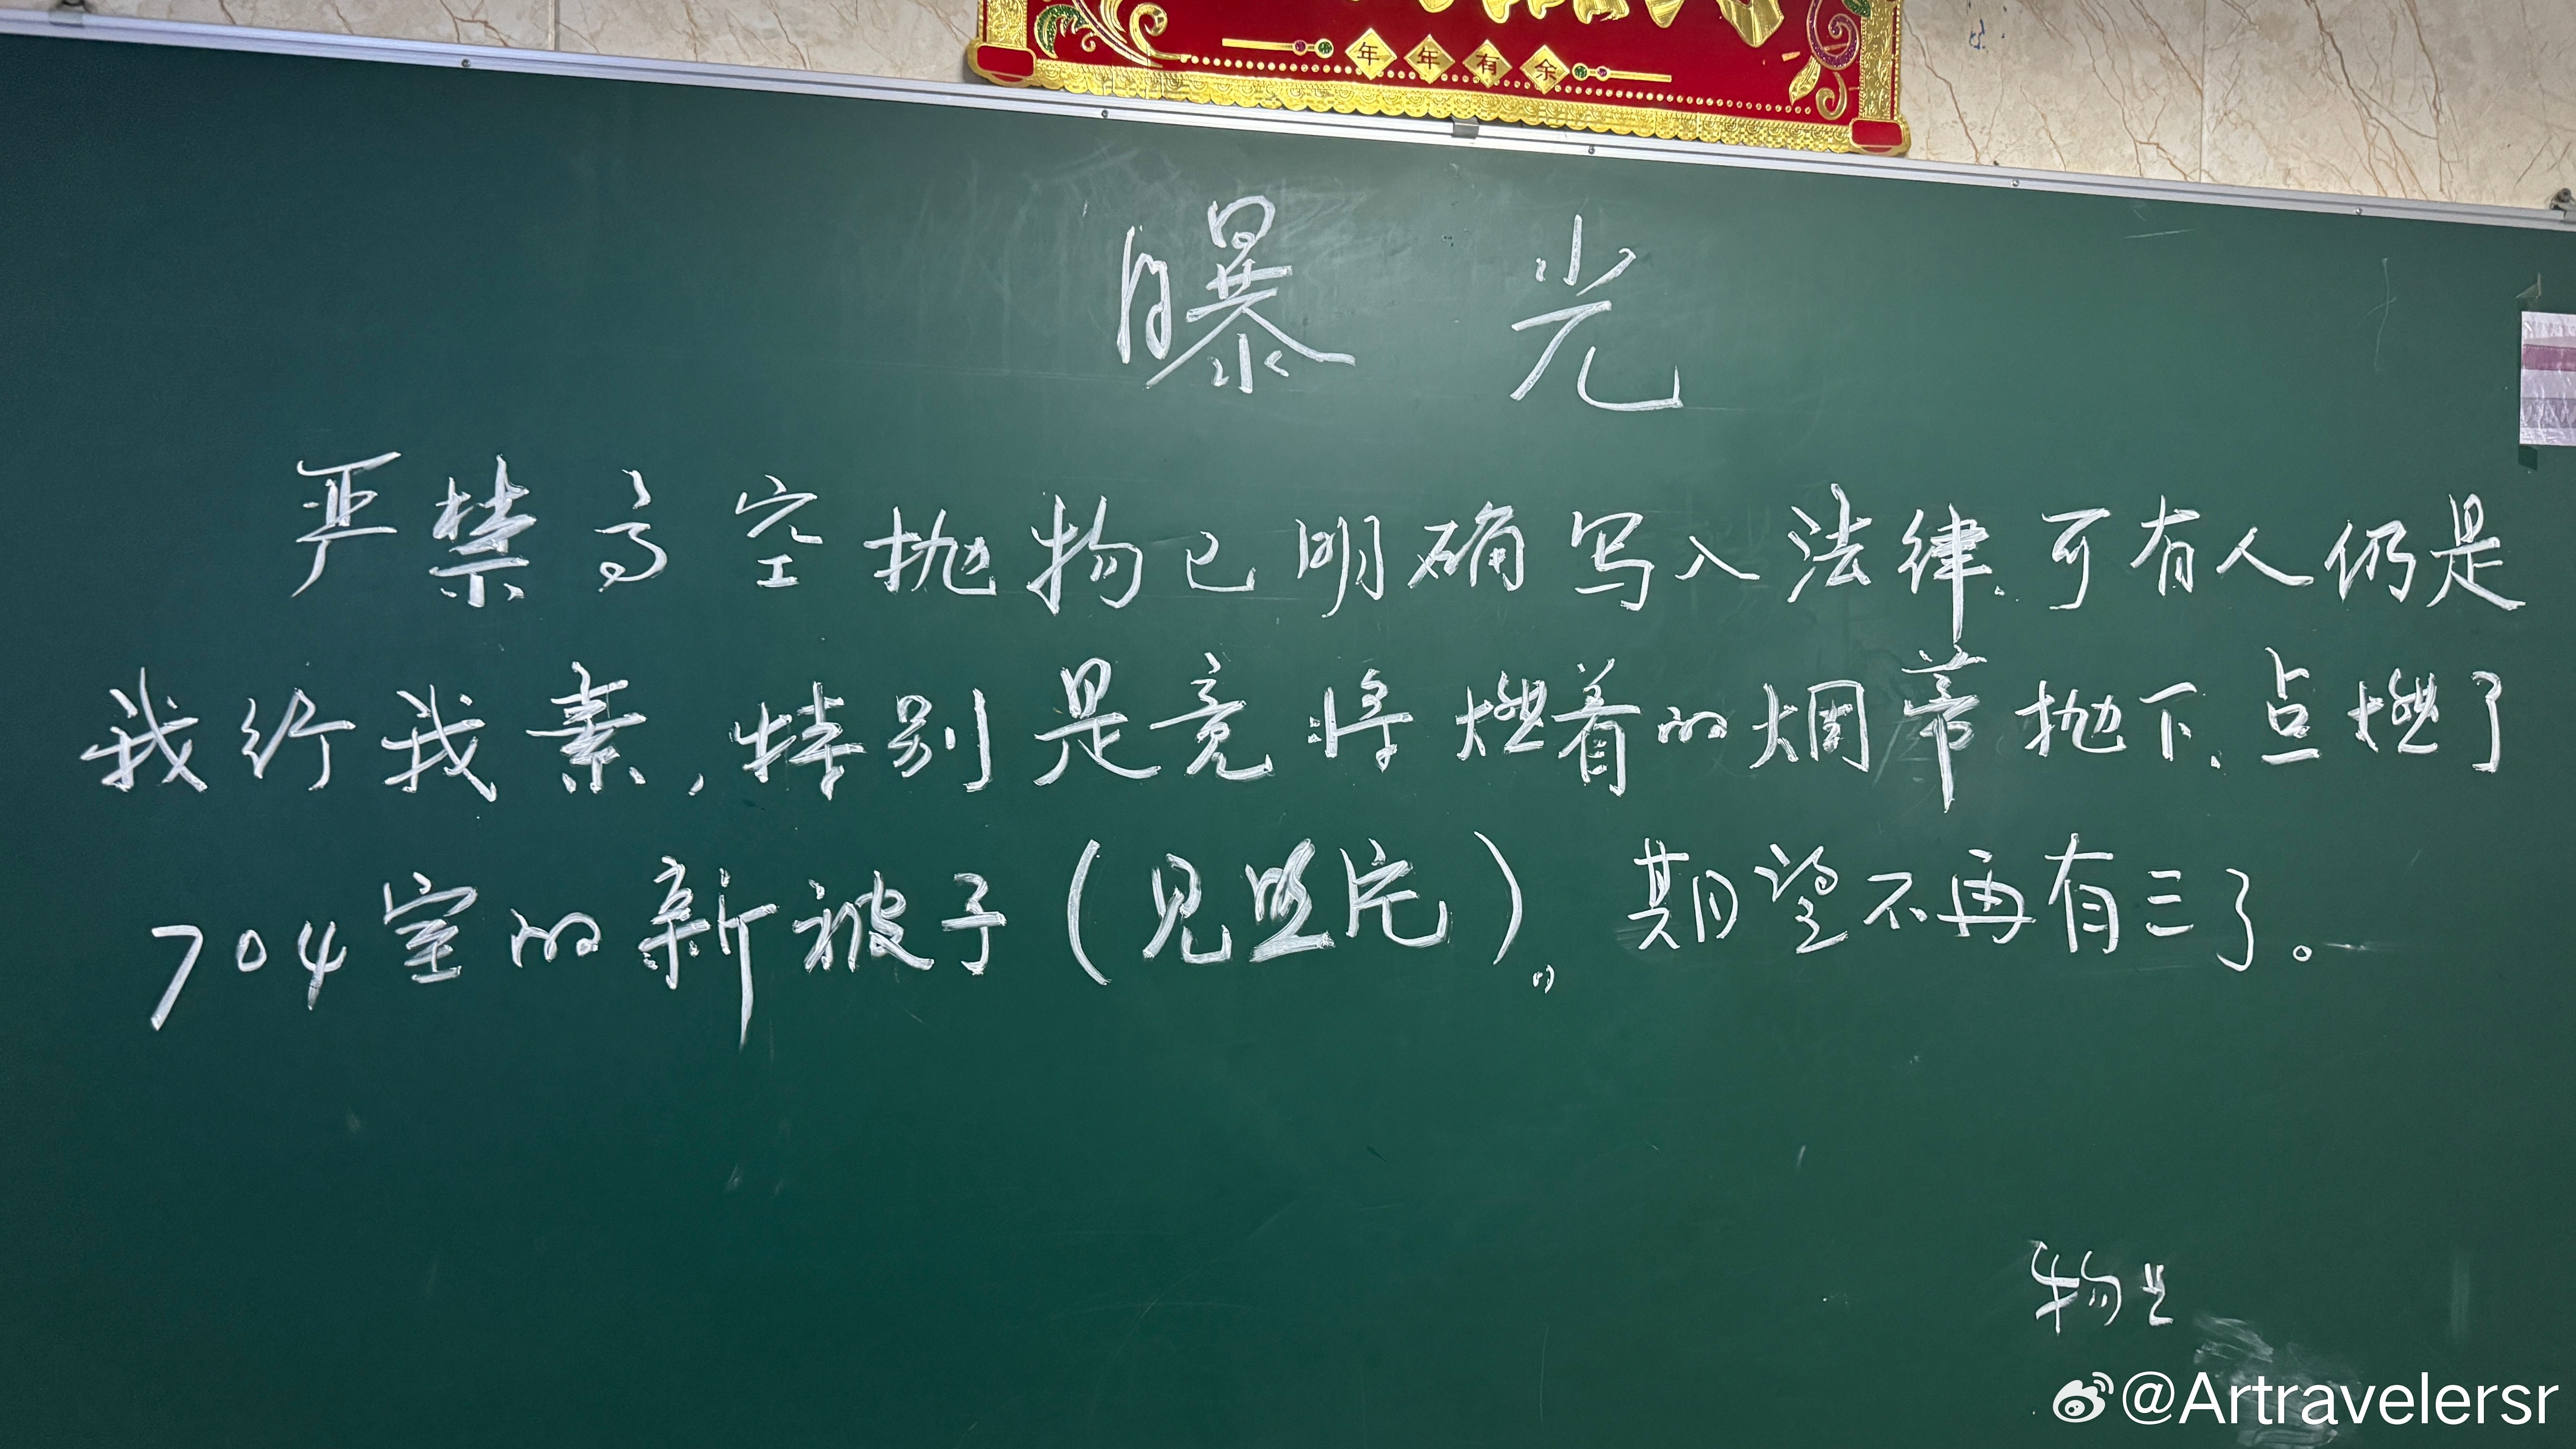 年年有余
曝光
严禁高空抛物已明确写入法律，可有人仍是
我行我素，特别是竟将燃着的烟蒂抛下，点燃了
704室的新被子（见照片）。期望不再有三了。
物业
@Artravelersr